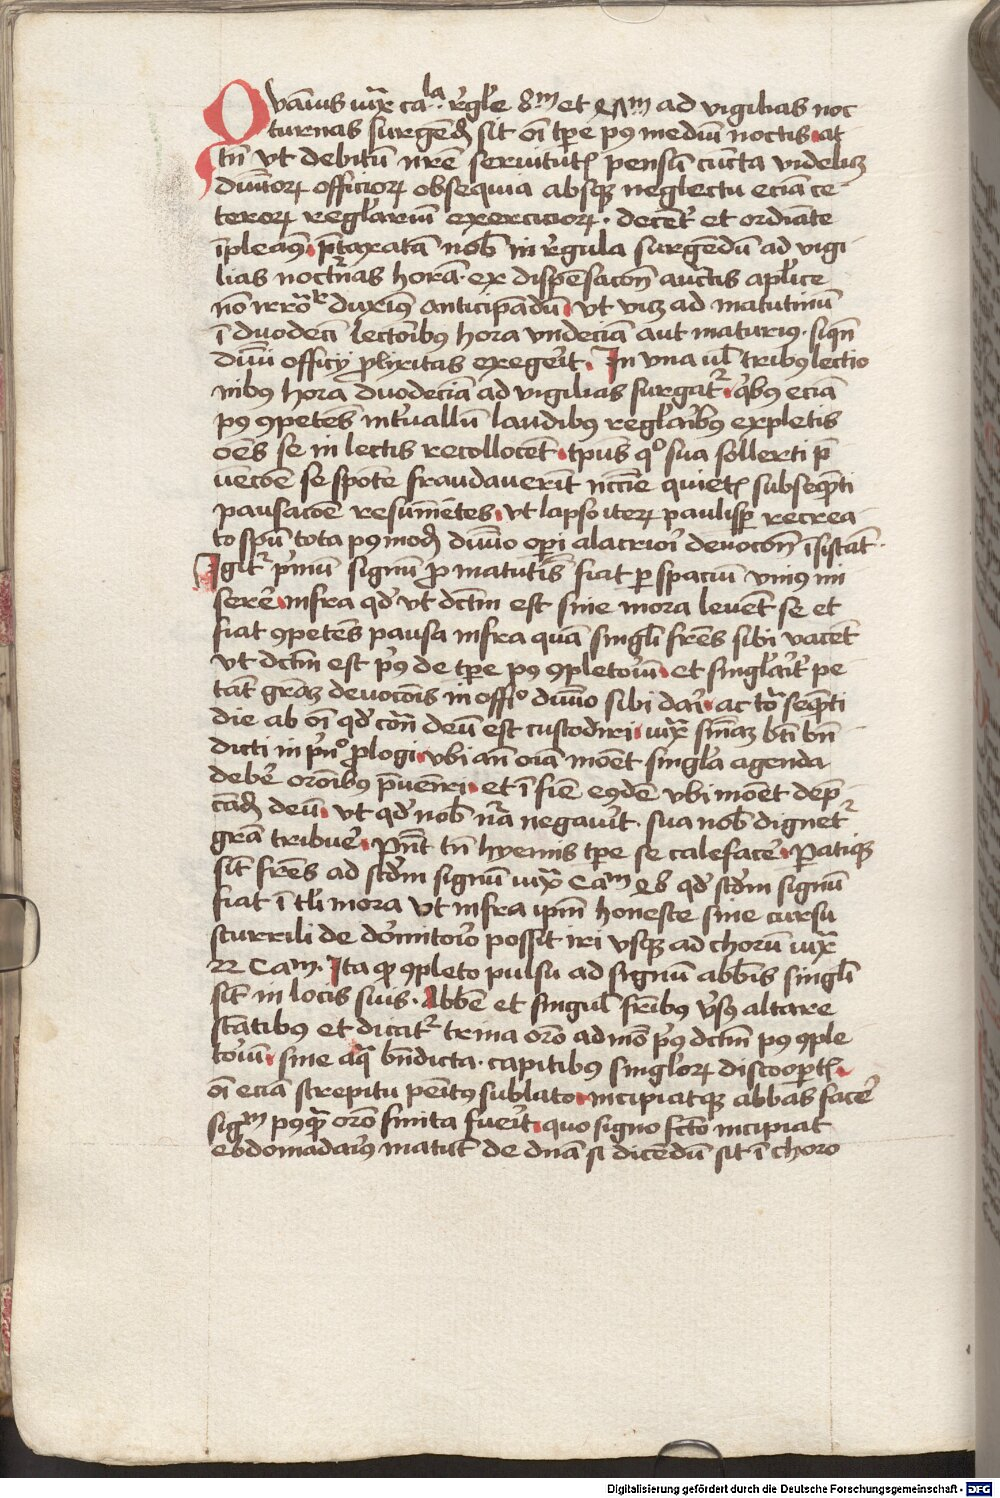 Qvamus iux̄ ca.la r̄gle 8m et xlAm ad vigilias noc
turnas surgēd sit oī tp̄e pꝰ mediū noctis at
tn̄ vt debitū nr̄e seruitutꝭ pensū cūcta videlicꝫ
diuīorꝝ officiorꝝ obsequia absqꝫ neglectu eciā ce
terorꝝ reglariū exercicior̄ꝝ · decēt et ordiate
īpleamꝰ p̄taxatā nob̄ in r̄gula surgēdū ad vigi
lias noct̄nas horā · ex dispēsacōn auctīs aplice
nō irr̄o duximꝰ anticipādū vt vicꝫ ad matutinū
ī duodeci lectōibus hora vndeciā aut maturiꝰ · siqn̄
diuī officij plixitas exegeit · In vna ul̄ tribus lectio
nibus hora duodeciā ad vigilias surgat̄ qbꝰ eciā
pꝰ ꝯpetens int̄uallū laudibus reglaibꝰ expletis
oēs se in lectis recollocēt tp̄us qo sua sollerti p̄
uēcōe se spōte fraudauerīt nccīe quietꝭ subseqn̄ti
pausacōe resumētes vt lapso iterꝝ paulisp̱ recrea
to sp̄u tota pꝰmod diuīo opi alacrioi deuocōn īsistāt ·
Igit̄ pmū signū ꝓ matutīs fiat per spaciū vniꝰ mi
serē infra qd vt dctm̄ est sine mora leuēt se et
fiat ꝯpetēs pausa infra quā singli frēs sibi vacēt
vt dctm̄ est pꝰ de tp̄e pꝰ ꝯpletoiū et singlait̄ pe
tāt grāꝫ deuocōis in offio diuīo sibi dai ac to seqn̄ti
die ab oī qd cōn deū est custodiri iux̄ snīaꝫ bt̄i bn̄
dicti in pn̄o ꝓlogi vbi ān oīa mōet singla agenda
debe orōibus p̄ueniri et ī fie eꝰdē vbi mōet dep̄
cād deū vt qd nob̄ nā negauit · sua nob̄ dignet̄
grā tribue · Pn̄t tn̄ hyemis tp̄e se calefacē · Paratiqꝫ
sīt frēs ad scdm signū iux̄ Cam xlb qd scdm signū
fiat ī tli mora vt infra ipm̄ honeste sine cursu
scurrili de dormitoio possit iri vsqꝫ ad chorū iux̄
22 Cam · Ita qꝫ ꝯpleto pulsu ad signū abbīs singli
sīt in locis suis · Abbē et singul fribus v̄sꝰ altare
stātibus et dicat̄ trina orō ad mō pꝰ dctm̄ pꝰ ꝯple
toiū sine aqa bn̄dicta · capitibus singlorꝝ discoop̱tꝭ
oī eciā strepitu pēitꝰ sublato incipiatqꝫ abbas facē
sigm pꝰqꝫ orō finita fueit quo signo fc̄to incipiat
ebdomadariꝰ matut̄ de dn̄a si dicēdū sit ī choro
Digitalisierung gefördert durch die Deutsche Forschungsgemeinschaft - DFG